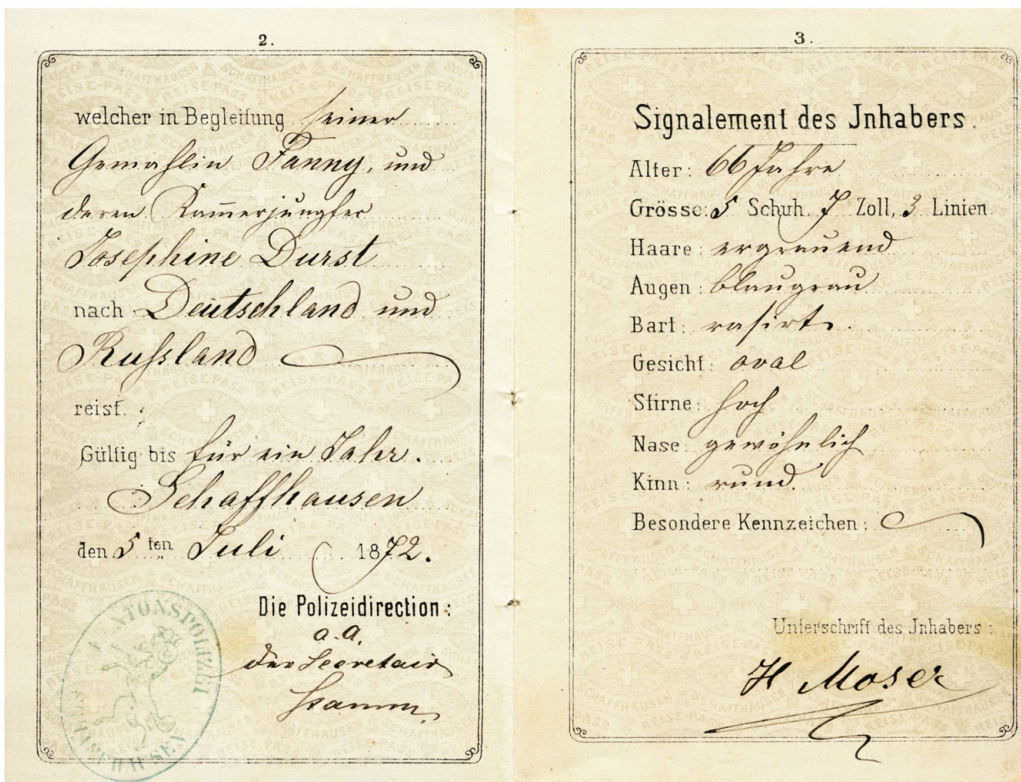 2.
welcher in Begleitung seiner
Gemahlin Fanny, und
deren Kam̅erjungfer
Josephine Durst
nach Deutschland und
Russland
reist.
Gültig bis für ein Jahr.
Schaffhausen
den 5ten Juli 1872.
Die Polizeidirection:
a.a.
der Secretair
Stamm.
KANTONSPOLIZEI SCHAFFHAUSEN
3.
Signalement des Jnhabers.
Alter: 66 Jahre
Grösse: 5 Schuh, 7 Zoll, 3 Linien.
Haare: ergrauend
Augen: blaugrau
Bart: rasirt.
Gesicht: oval
Stirne: hoch
Nase: gewöhnlich
Kinn: rund.
Besondere Kennzeichen:
Unterschrift des Jnhabers:
H Moser